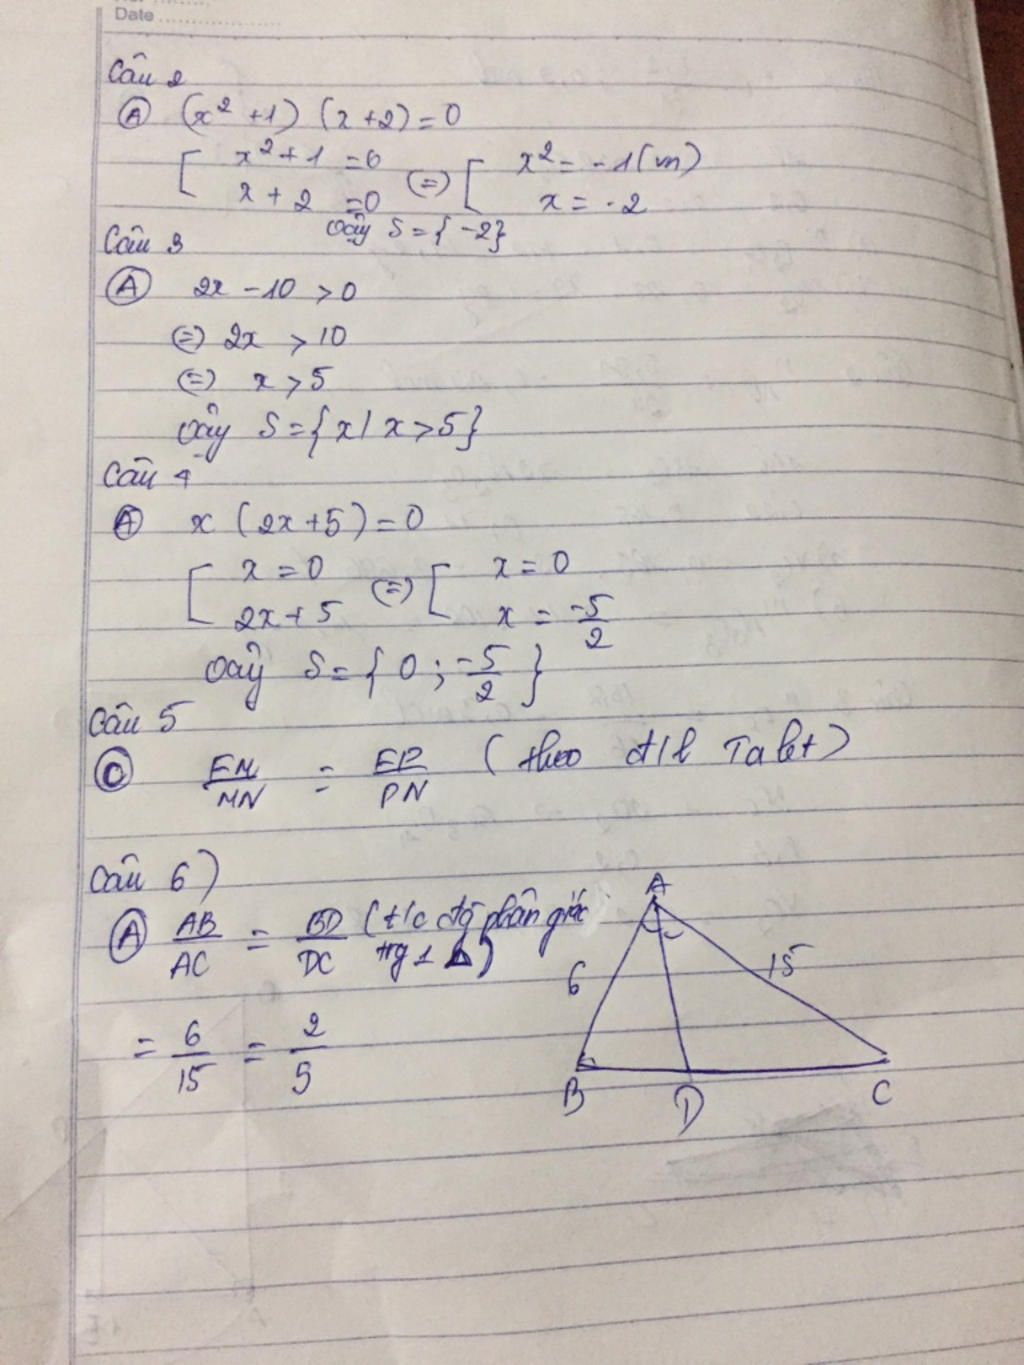 Date
Câu 2
Ⓐ (x² + 1) (x + 2) = 0
[ x² + 1 = 0 (=) [ x² = -1 (vn)
x + 2 = 0 x = -2
Vậy S = { -2 }
Câu 3
Ⓐ 2x - 10 > 0
(=) 2x > 10
(=) x > 5
Vậy S = { x / x > 5 }
Câu 4
Ⓐ x (2x + 5) = 0
[ x = 0 (=) [ x = 0
2x + 5 x = -5/2
Vậy S = { 0 ; -5/2 }
Câu 5
Ⓒ EM/MN = EP/PN (theo đ/l Talet)
Câu 6)
Ⓐ AB/AC = BD/DC (t/c đg phân giác
trg 1 Δ)
= 6/15 = 2/5
A
6
15
B
D
C